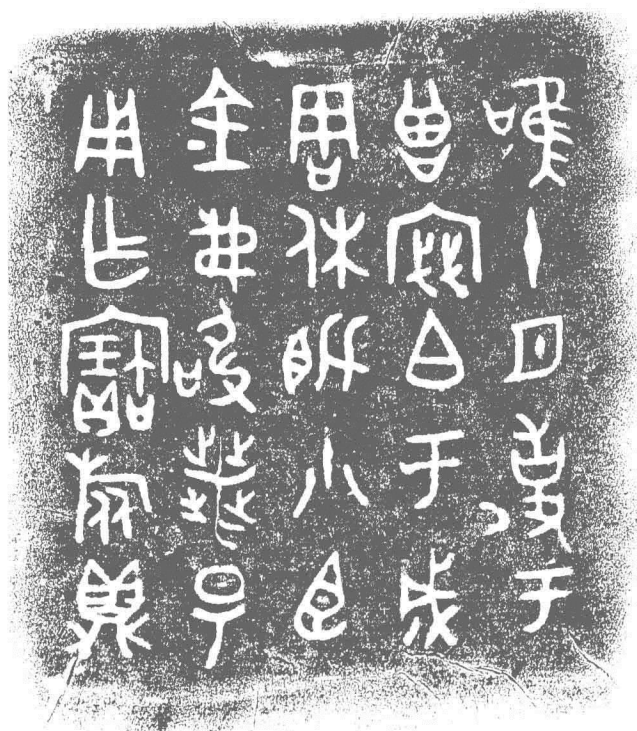 唯十月事于
曾密白于成
周休毗小臣
金弗敢喪易
用乍寶旅鼎